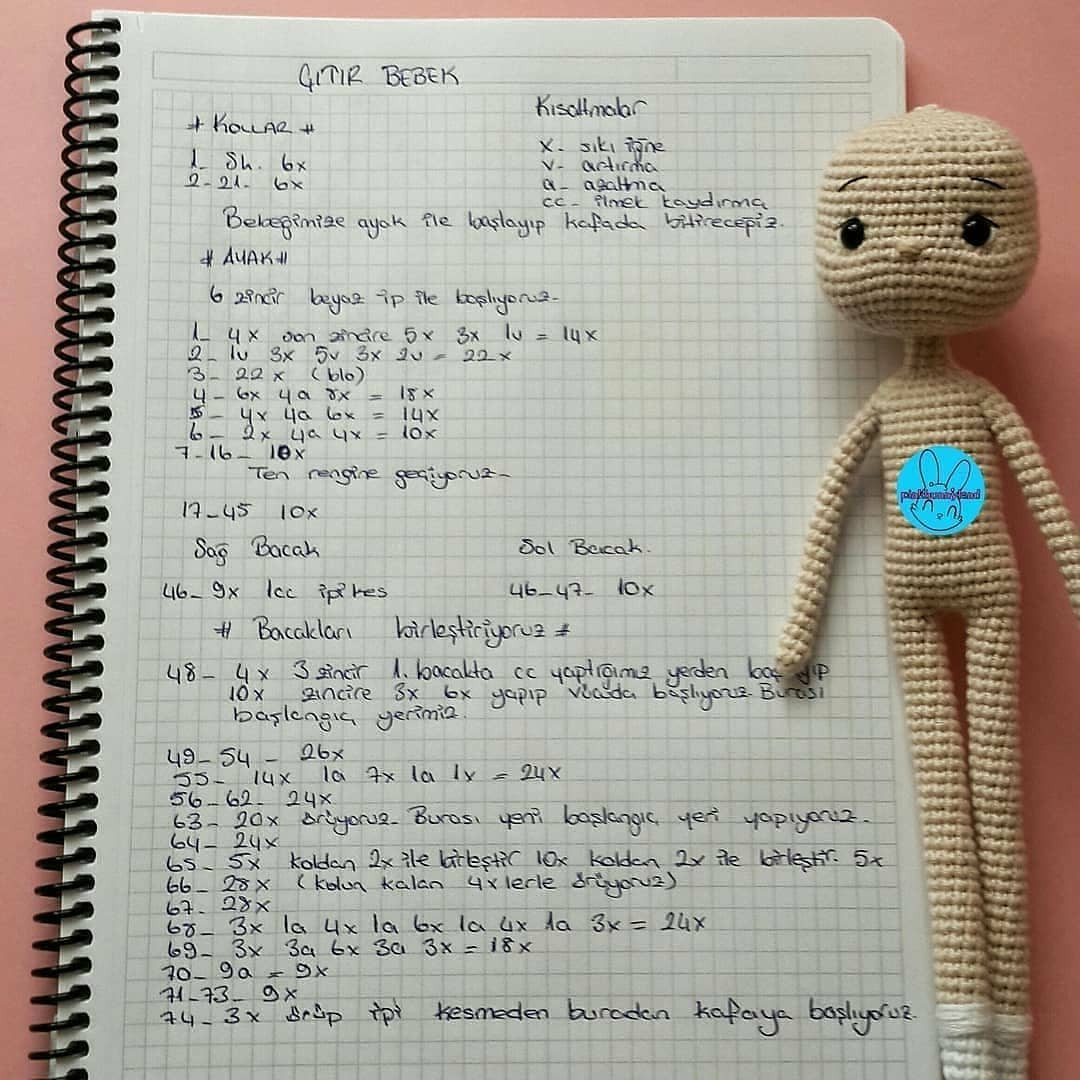 ÇITIR BEBEK
Kısaltmalar
# KOLLAR #
x- sıkı iğne
1- Sh. 6x
v- artırma
2-21- 6x
a- azaltma
cc- ilmek kaydırma
Bebeğimize ayak ile başlayıp kafada bitireceğiz.
# AYAK #
6 zincir beyaz ip ile başlıyoruz-
1- 4x son zincire 5x 3x 1v = 14x
2- 1v 3x 5v 3x 2v = 22x
3- 22x (blo)
4- 6x 4a 8x = 18x
5- 4x 4a 6x = 14x
6- 2x 4a 4x = 10x
7-16- 10x
Ten rengine geçiyoruz-
17-45 10x
Sağ Bacak
Sol Bacak.
46- 9x 1cc ipi kes
46-47- 10x
# Bacakları birleştiriyoruz #
48- 4x 3 zincir 1. bacakta cc yaptığımız yerden
10x zincire 3x 6x yapıp vücuda başlıyoruz. Burası
başlangıç yerimiz.
49-54- 26x
55- 14x 1a 7x 1a 1x = 24x
56-62- 24x
63- 20x örüyoruz- Burası yeni başlangıç yeri yapıyoruz-
64- 24x
65- 5x koldan 2x ile birleştir 10x koldan 2x ile birleştir. 5x
66- 28x (kolun kalan 4xlerle örüyoruz)
67- 28x
68- 3x 1a 4x 1a 6x 1a 4x 1a 3x = 24x
69- 3x 3a 6x 3a 3x = 18x
70- 9a = 9x
71-73- 9x
74- 3x örüp ipi kesmeden buradan kafaya başlıyoruz.